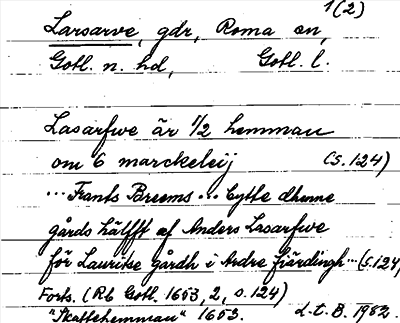 1(2)
Larsarve, gdr, Roma sn,
Gotl. n. hd, Gotl. l.
Lasarfwe är 1/2 hemman
om 6 marckeleij (s.124)
... Frants Breems ... bytte dhenne
gårds hälfft af Anders Lasarfwe
för Lauritse gårdh i Ardre fiärdingh ... (s.124)
Forts. (Rb Gotl. 1653, 2, s.124)
"Skattehemman" 1653. L.t.B. 1982.